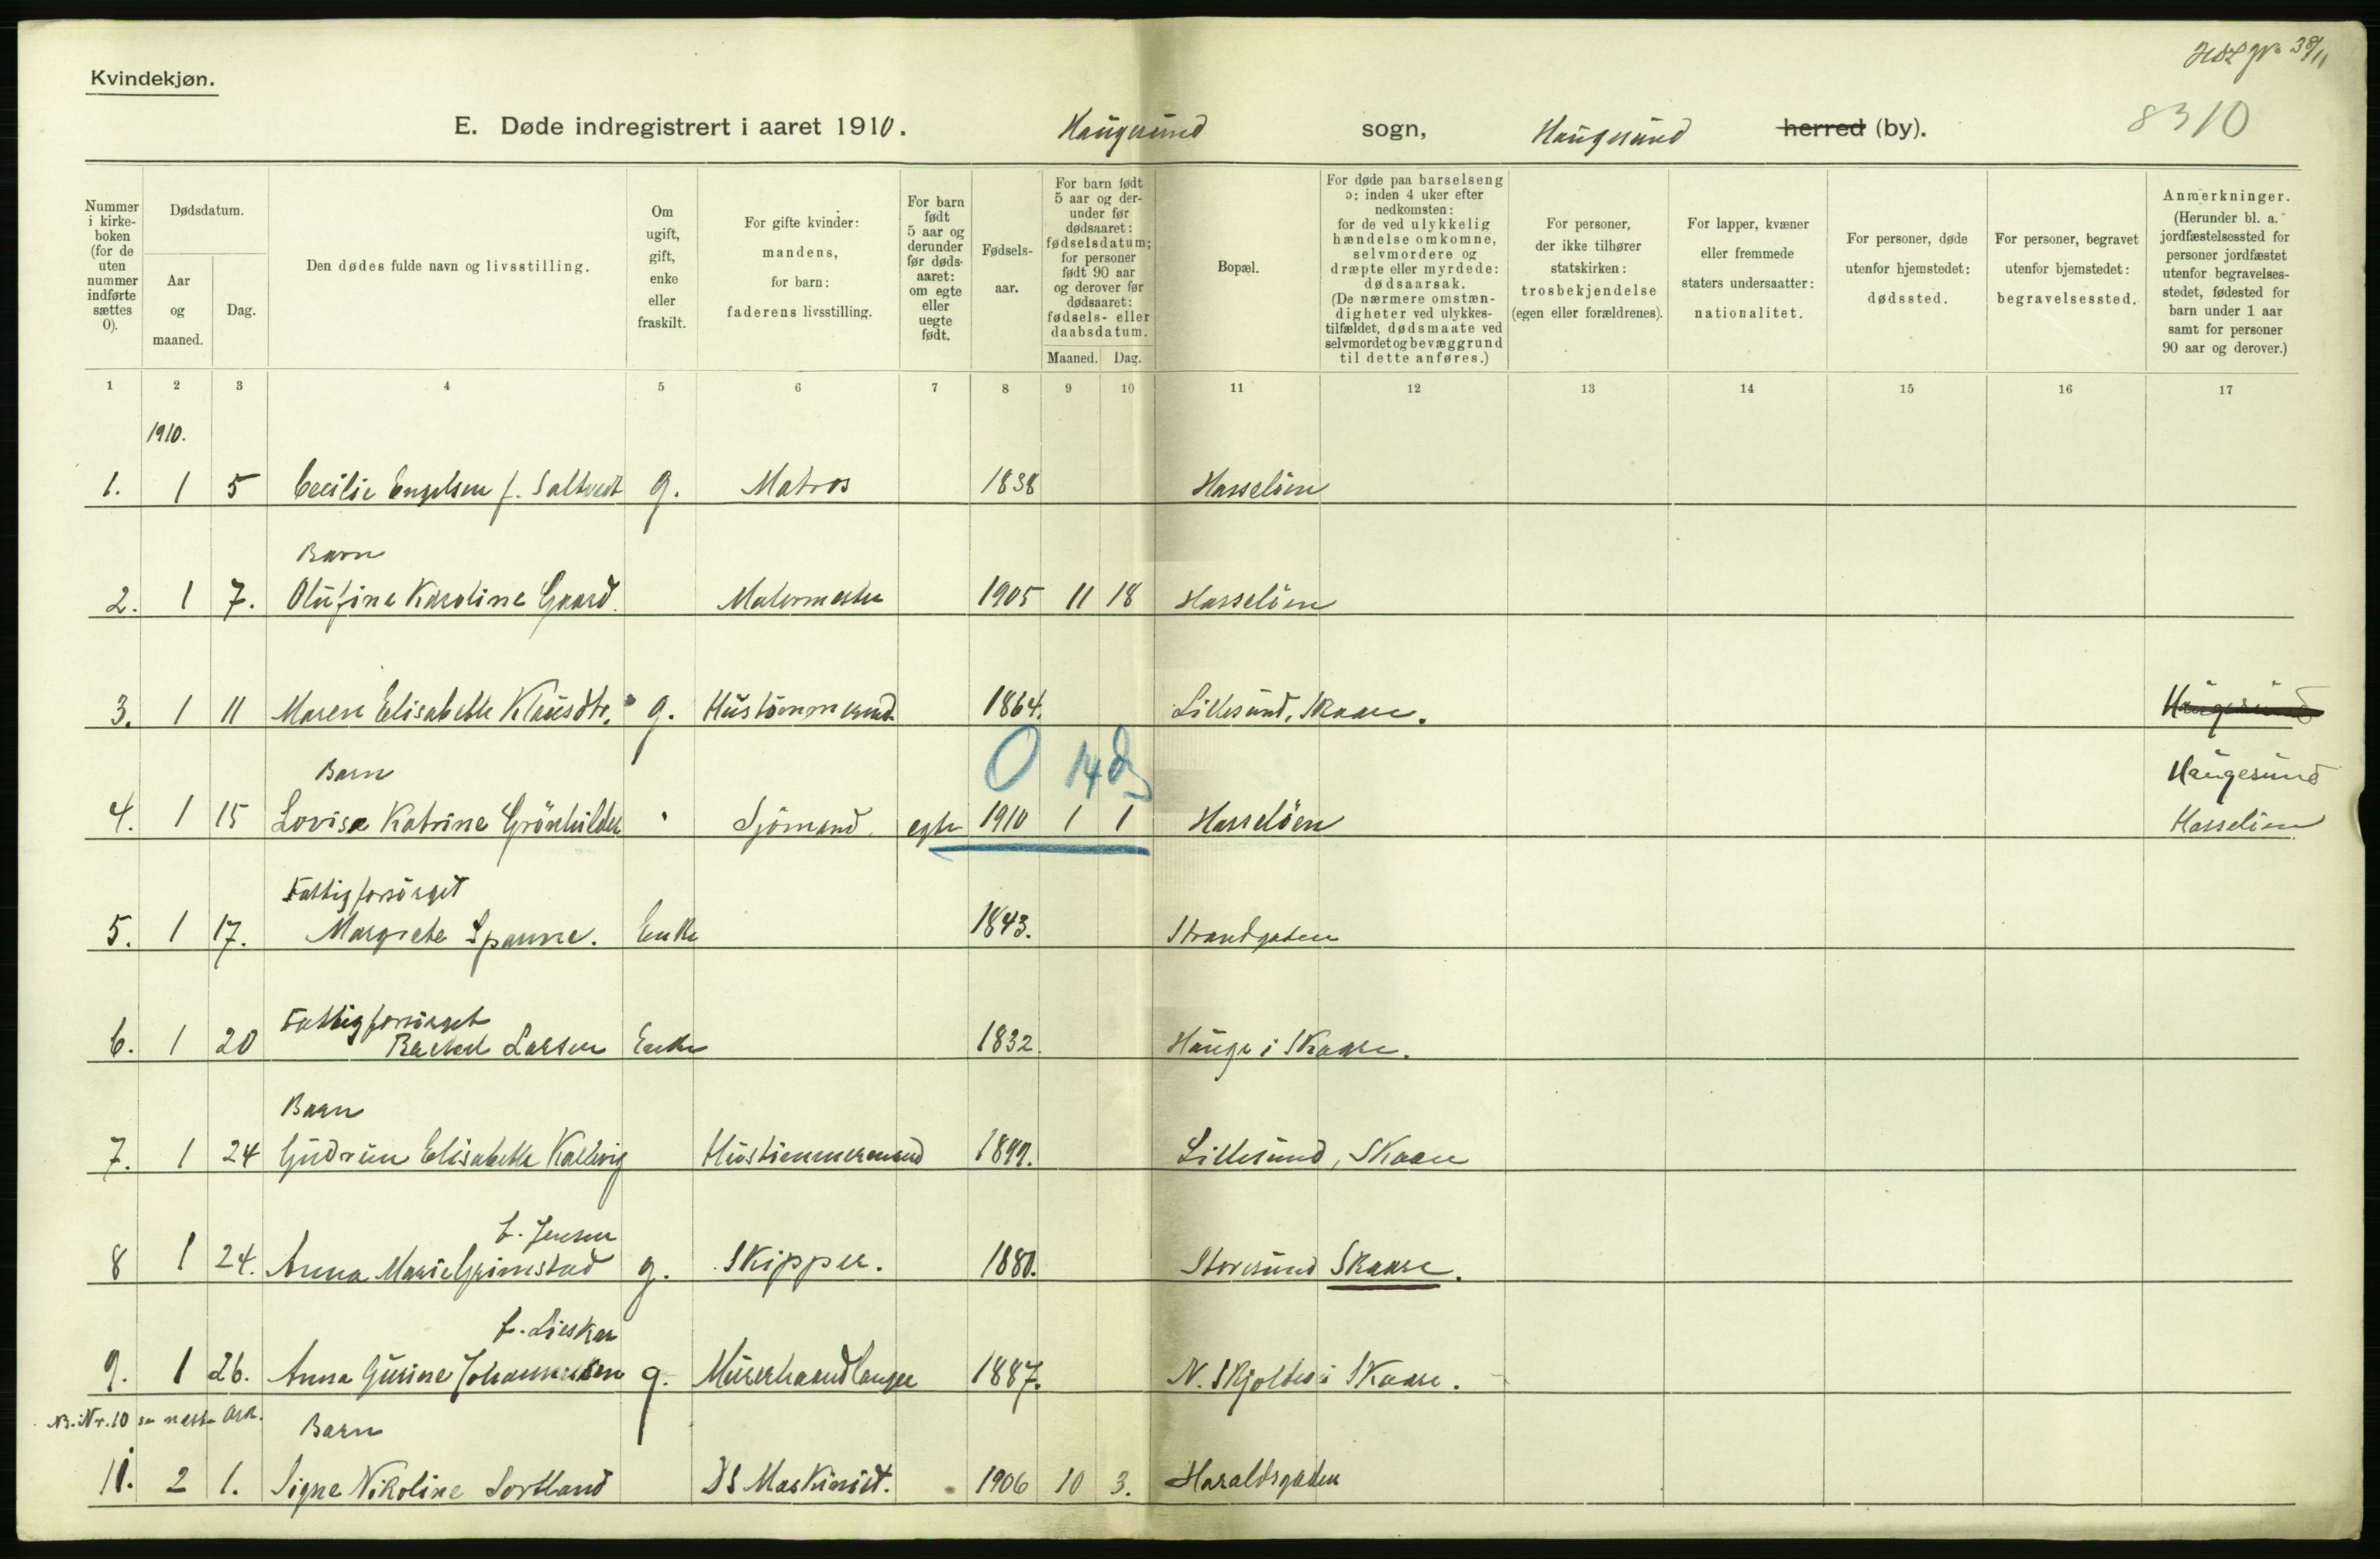 Kvindekjøn.
8310
E. Døde indregistrert i aaret 1910. Haugesund sogn, Haugesund herred (by).
Nummer i kirke-boken (for de uten nummer indførte sættes 0).
Dødsdatum.
Aar og maaned.
Dag.
Den dødes fulde navn og livsstilling.
Om ugift, gift, enke eller fraskilt.
For gifte kvinder: mandens, for barn: faderens livsstilling.
For barn født 5 aar og derunder før døds-aaret: om egte eller uegte født.
Fødsels-aar.
For barn født 5 aar og der-under før dødsaaret: fødselsdatum; for personer født 90 aar og derover før dødsaaret: fødsels- eller daabsdatum.
Maaned. Dag.
Bopæl.
For døde paa barselseng ɔ: inden 4 uker efter nedkomsten: for de ved ulykkelig hændelse omkomne, selvmordere og dræpte eller myrdede: dødsaarsak. (De nærmere omstæn-digheter ved ulykkes-tilfældet, dødsmaate ved selvmordet og bevæggrund til dette anføres.)
For personer, der ikke tilhører statskirken: trosbekjendelse (egen eller forældrenes).
For lapper, kvæner eller fremmede staters undersaatter: nationalitet.
For personer, døde utenfor hjemstedet: dødssted.
For personer, begravet utenfor hjemstedet: begravelsessted.
Anmerkninger. (Herunder bl. a. jordfæstelsessted for personer jordfæstet utenfor begravelses-stedet, fødested for barn under 1 aar samt for personer 90 aar og derover.)
1 2 3 4 5 6 7 8 9 10 11 12 13 14 15 16 17
1910.
1. 1 5 Cecilie Engelsen f. Saltvedt g. Matros 1838 Hasseløen
Barn
2. 1 7. Olufine Karoline Gaard. Malermester 1905 11 18 Hasseløen
3. 1 11 Maren Elisabeth Klausdtr. g. Hustømmermd. 1864. Lillesund, Skaare. Haugesund
0 14 d
Barn Haugesund
4. 1 15 Lovise Katrine Grønhilder Sjømand. egte 1910 1 1 Hasseløen Hasseløen
Fattigforsørget
5. 1 17. Margrete Spanne. Enke 1843. Strandgaten
Fattigforsørget
6. 1 20 Rachel Larsen Enke 1832. Hauge i Skaare.
Barn
7. 1 24 Gudrun Elisabeth Kallevig Hustømmermand 1899. Lillesund, Skaare
f. Jensen
8 1 24. Anna Marie Grimstad g. Skipper. 1880. Storesund Skaare.
f. Lieskar
9. 1 26. Anna Gurine Johannesen g. Murerhaandlanger 1887. N. Skjoldes i Skaare.
NB. Nr. 10 se næste Ark.
Barn
11. 2 1. Signe Nikoline Sortland DS Maskinist. 1906 10 3. Haraldsgaden